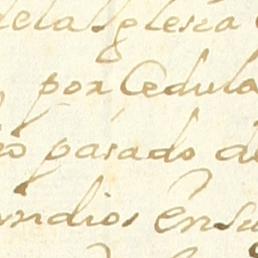 dela Iglesia
por Cedula
pasado de
indios ensu